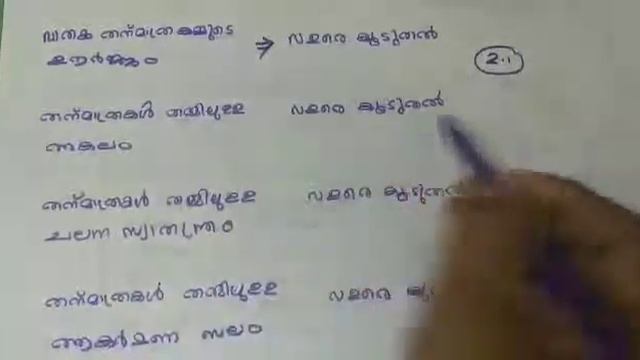 വാതക തന്മാത്രകളുടെ ⇒ വളരെ കൂടുതൽ
ഊർജ്ജം
2.1
തന്മാത്രകൾ തമ്മിലുള്ള വളരെ കൂടുതൽ
അകലം
തന്മാത്രകൾ തമ്മിലുള്ള വളരെ കൂടുതൽ
ചലന സ്വാതന്ത്ര്യം
തന്മാത്രകൾ തമ്മിലുള്ള വളരെ
ആകർഷണ ബലം